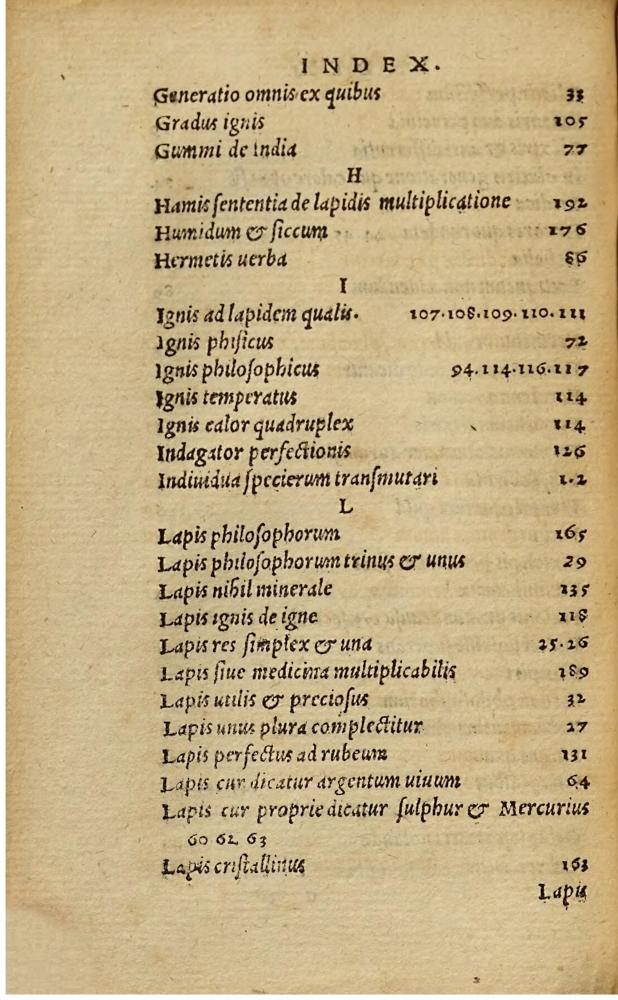 INDEX.
Generatio omnis ex quibus 33
Gradus ignis 105
Gummi de india 77
H
Hamis ſententia de lapidis multiplicatione 192
Humidum & ſiccum 176
Hermetis uerba 86
I
Ignis ad lapidem qualis. 107.108.109.110.111
Ignis phiſicus 72
Ignis philoſophicus 94.114.116.117
Ignis temperatus 114
Ignis calor quadruplex 114
Indagator perfectionis 126
Indiuidua ſpecierum tranſmutari 1.2
L
Lapis philoſophorum 165
Lapis philoſophorum trinus & unus 29
Lapis nihil minerale 135
Lapis ignis de igne 118
Lapis res ſimplex & una 25.26
Lapis ſiue medicina multiplicabilis 189
Lapis utilis & precioſus 32
Lapis unus plura complectitur 27
Lapis perfectus ad rubeum 131
Lapis cur dicatur argentum uiuum 64
Lapis cur proprie dicatur ſulphur & Mercurius
60 62 63
Lapis criſtallinus 163
Lapis